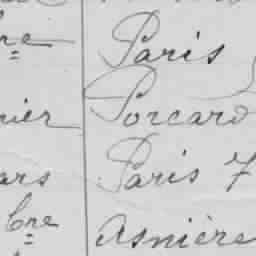 bre Paris
nier Porcaro
ars Paris 7
bre Asnière